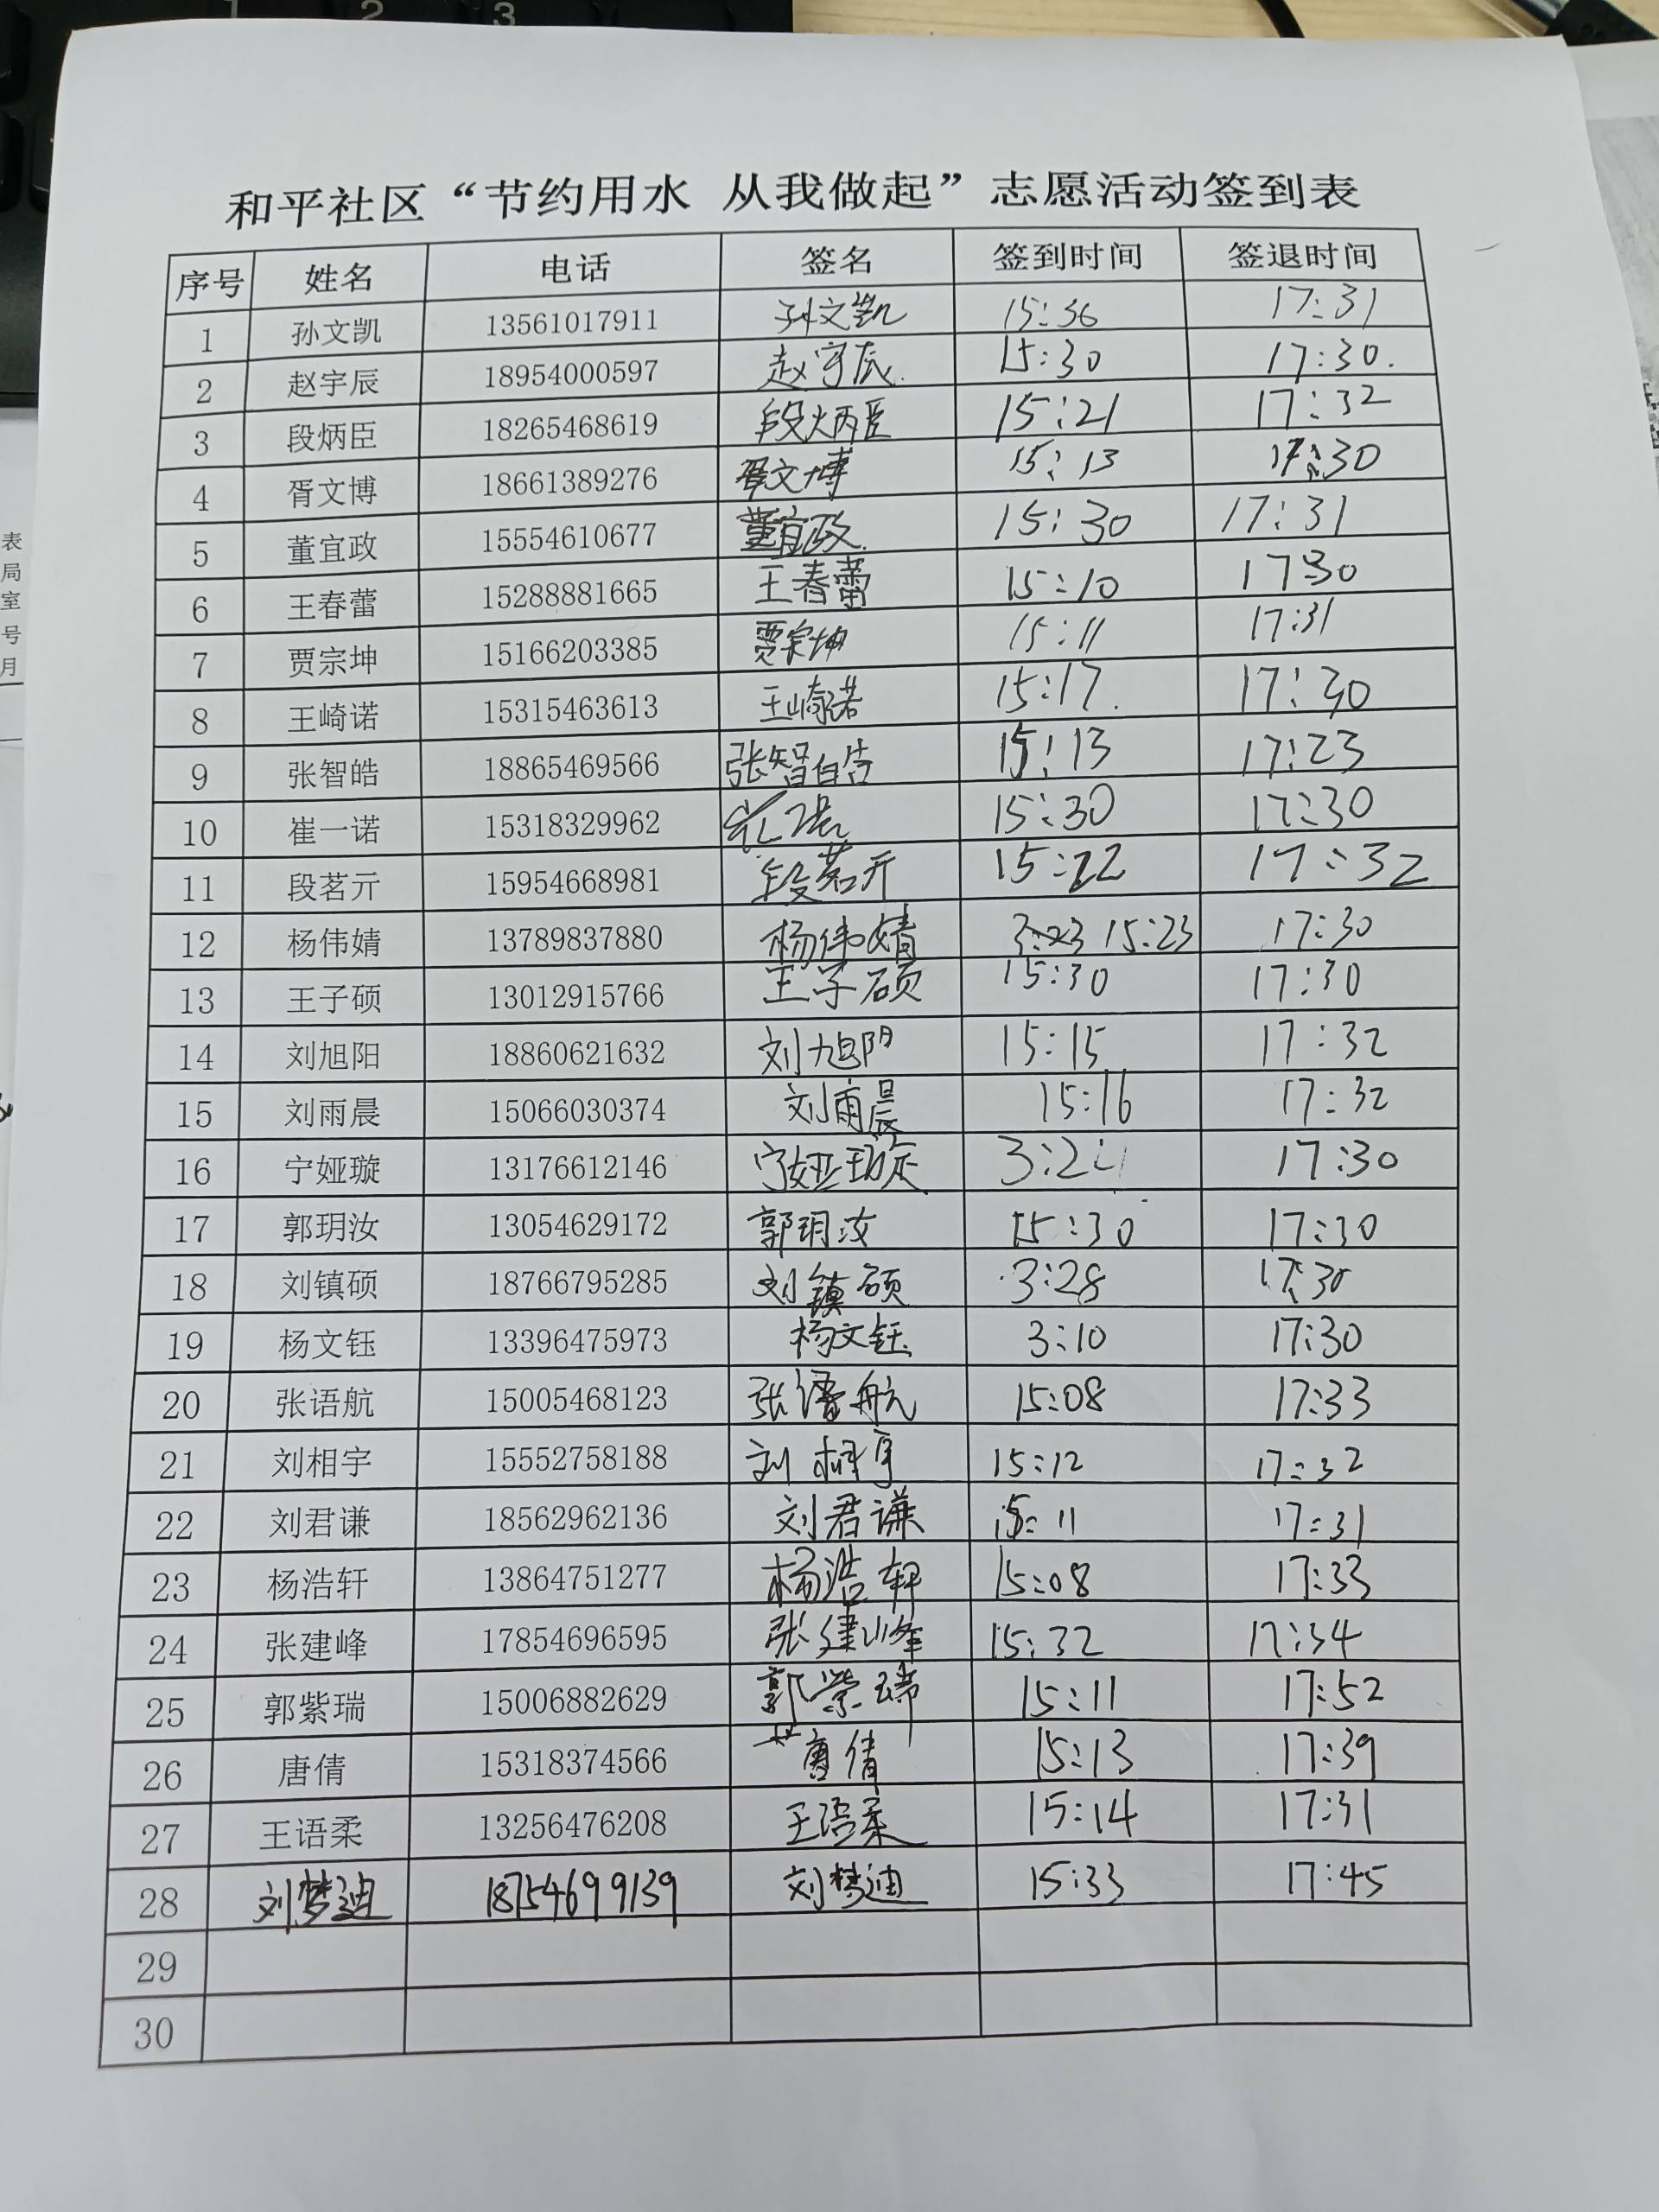 1 2 3
和平社区“节约用水 从我做起”志愿活动签到表
序号 姓名 电话 签名 签到时间 签退时间
1 孙文凯 13561017911 孙文凯 15:36 17:31
2 赵宇辰 18954000597 赵宇辰. 15:30 17:30.
3 段炳臣 18265468619 段炳臣 15:21 17:32
4 胥文博 18661389276 胥文博 15:13 17:30
5 董宜政 15554610677 董宜政. 15:30 17:31
6 王春蕾 15288881665 王春蕾 15:10 17:30
7 贾宗坤 15166203385 贾宗坤 15:11 17:31
8 王崎诺 15315463613 王崎诺 15:17. 17:30
9 张智皓 18865469566 张智皓 15:13 17:23
10 崔一诺 15318329962 15:30 17:30
11 段茗亓 15954668981 段茗亓 15:22 17:32
12 杨伟婧 13789837880 杨伟婧 3:23 15:23 17:30
13 王子硕 13012915766 王子硕 15:30 17:30
14 刘旭阳 18860621632 刘旭阳 15:15 17:32
15 刘雨晨 15066030374 刘雨晨 15:16 17:32
16 宁娅璇 13176612146 宁娅璇 3:24 17:30
17 郭玥汝 13054629172 郭玥汝 15:30 17:30
18 刘镇硕 18766795285 刘镇硕 3:28 17:30
19 杨文钰 13396475973 杨文钰 3:10 17:30
20 张语航 15005468123 张语航 15:08 17:33
21 刘相宇 15552758188 刘相宇 15:12 17:32
22 刘君谦 18562962136 刘君谦 15:11 17:31
23 杨浩轩 13864751277 杨浩轩 15:08 17:33
24 张建峰 17854696595 张建峰 15:32 17:34
25 郭紫瑞 15006882629 郭紫瑞 15:11 17:52
26 唐倩 15318374566 唐倩 15:13 17:39
27 王语柔 13256476208 王语柔 15:14 17:31
28 刘梦迪 18754699139 刘梦迪 15:33 17:45
29
30
表
局
室
号
月